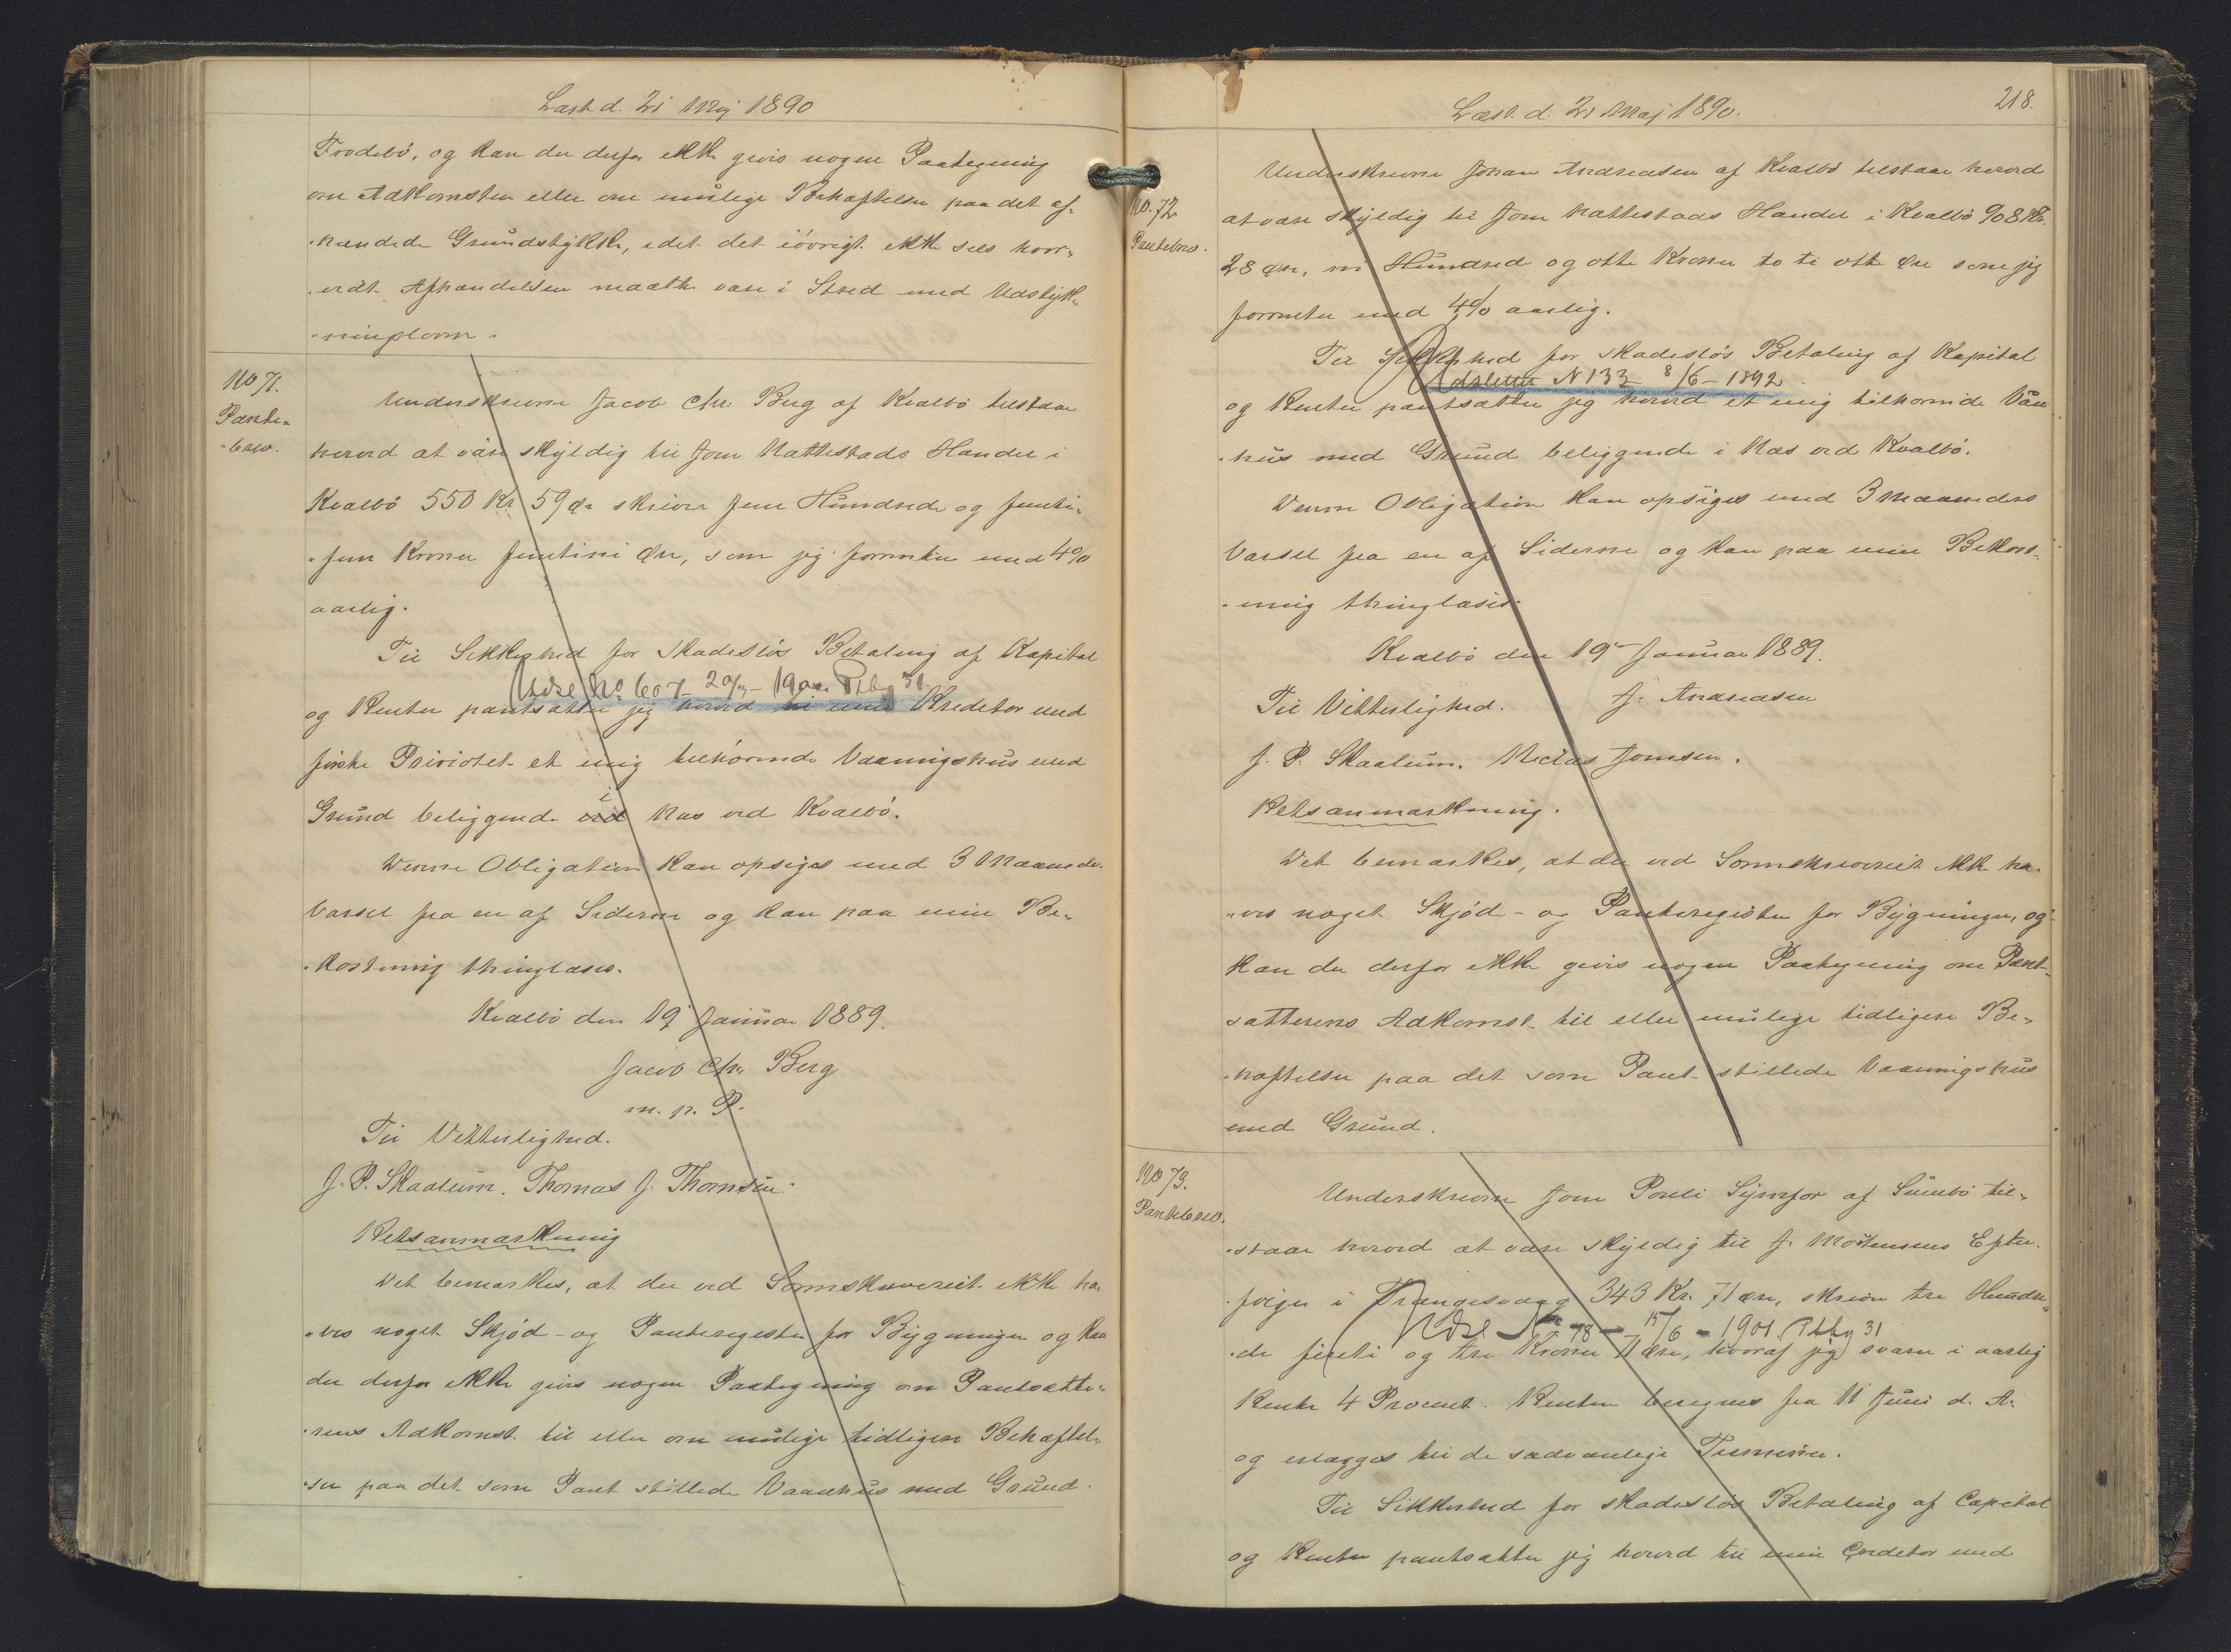 Læst d. 21 Maj 1890
Frodebö, og kan der derfor ikke gives nogen Paategning
om Adkomsten eller om mulige Behæftelser paa det af-
hændede Grundstykke, idet det iövrigt ikke sees hvor-
vidt Afhændelsen maatte være i Strid med Udstyk-
ningsloven.
No 71.
Pante-
brev.
Underskrevne Jacob Chr. Berg af Kvalbö tilstaar
herved at være skyldig til Joen Nattestads Handel i
Kvalbö 550 Kr 59 Ør skriver fem Hundrede og femti-
fem Kroner femtini Øre, som jeg forrenter med 4%
aarlig.
Til Sikkerhed for skadeslös Betaling af Kapital
Udsl No 607 - 20/ - 190 Ptbg 31
og Renter pantsætter jeg herved til min Kreditor med
förste Prioritet et mig tilhörende Vaaningshus med
i
Grund beliggende ved Næs ved Kvalbö.
Denne Obligation kan opsiges med 3 Maaneders
Varsel fra en af Siderne og kan paa min Be-
kostning thinglæses.
Kvalbö den 19 Januar 1889.
Jacob Chr. Berg
m. p. P.
Til Vitterlighed.
J. P. Skaalum. Thomas J. Thomsen.
Retsanmærkning
Det bemærkes, at der ved Sorenskriveriet ikke ha-
ves noget Skjöd- og Panteregister for Bygninger og kan
der derfor ikke gives nogen Paategning om Pantsætte-
rens Adkomst til eller om mulige tidligere Behæftel-
ser paa det som Pant stillede Vaanhus med Grund.
Læst d. 21 Maj 1890.
218.
No. 72
Pantebrev.
Underskrevne Johan Andreasen af Kvalbö tilstaar herved
at være skyldig til Joen Nattestads Handel i Kvalbö 908 Kr.
28 Øre, ni Hundred og otte Kroner to ti otte Øre som jeg
forrenter med 4% aarlig.
Til Sikkerhed for skadeslös Betaling af Kapital
Udslettet N 133 8/6 - 1892
og Renter pantsætter jeg herved et mig tilhörende Vån
hus med Grund beliggende i Næs ved Kvalbö.
Denne Obligation kan opsiges med 3 Maaneders
Varsel fra en af Siderne og kan paa min Bekost-
ning thinglæses.
Kvalbö den 19 Januar 1889.
Til Vitterlighed. J. Andreasen
J. P. Skaalum. Niclas Joensen.
Retsanmærkning.
Det bemærkes, at der ved Sorenskriveriet ikke ha-
ves noget Skjöd- og Panteregister for Bygninger, og
kan der derfor ikke gives nogen Paategning om Pant-
sætterens Adkomst til eller mulige tidligere Be-
hæftelser paa det som Pant stillede Vaaningshus
med Grund.
No 73.
Pantebrev.
Underskrevne Joen Pouli Symfor af Sumbö til-
staar herved at være skyldig til J. Mortensens Efter-
fölger i Trangesvaag 343 Kr. 71 Øre, skriver tre Hundre-
Udsl No 78 - 15/6 - 1901. Ptbg 31
de firti og tre Kroner 71 Øre, hvoraf jeg svarer i aarlig
Rente 4 Procent. Renten beregnes fra 11 Juni d. A.
og erlægges til de sædvanlige Terminer.
Til Sikkerhed for skadeslös Betaling af Capital
og Renter pantsætter jeg herved til min Creditor med